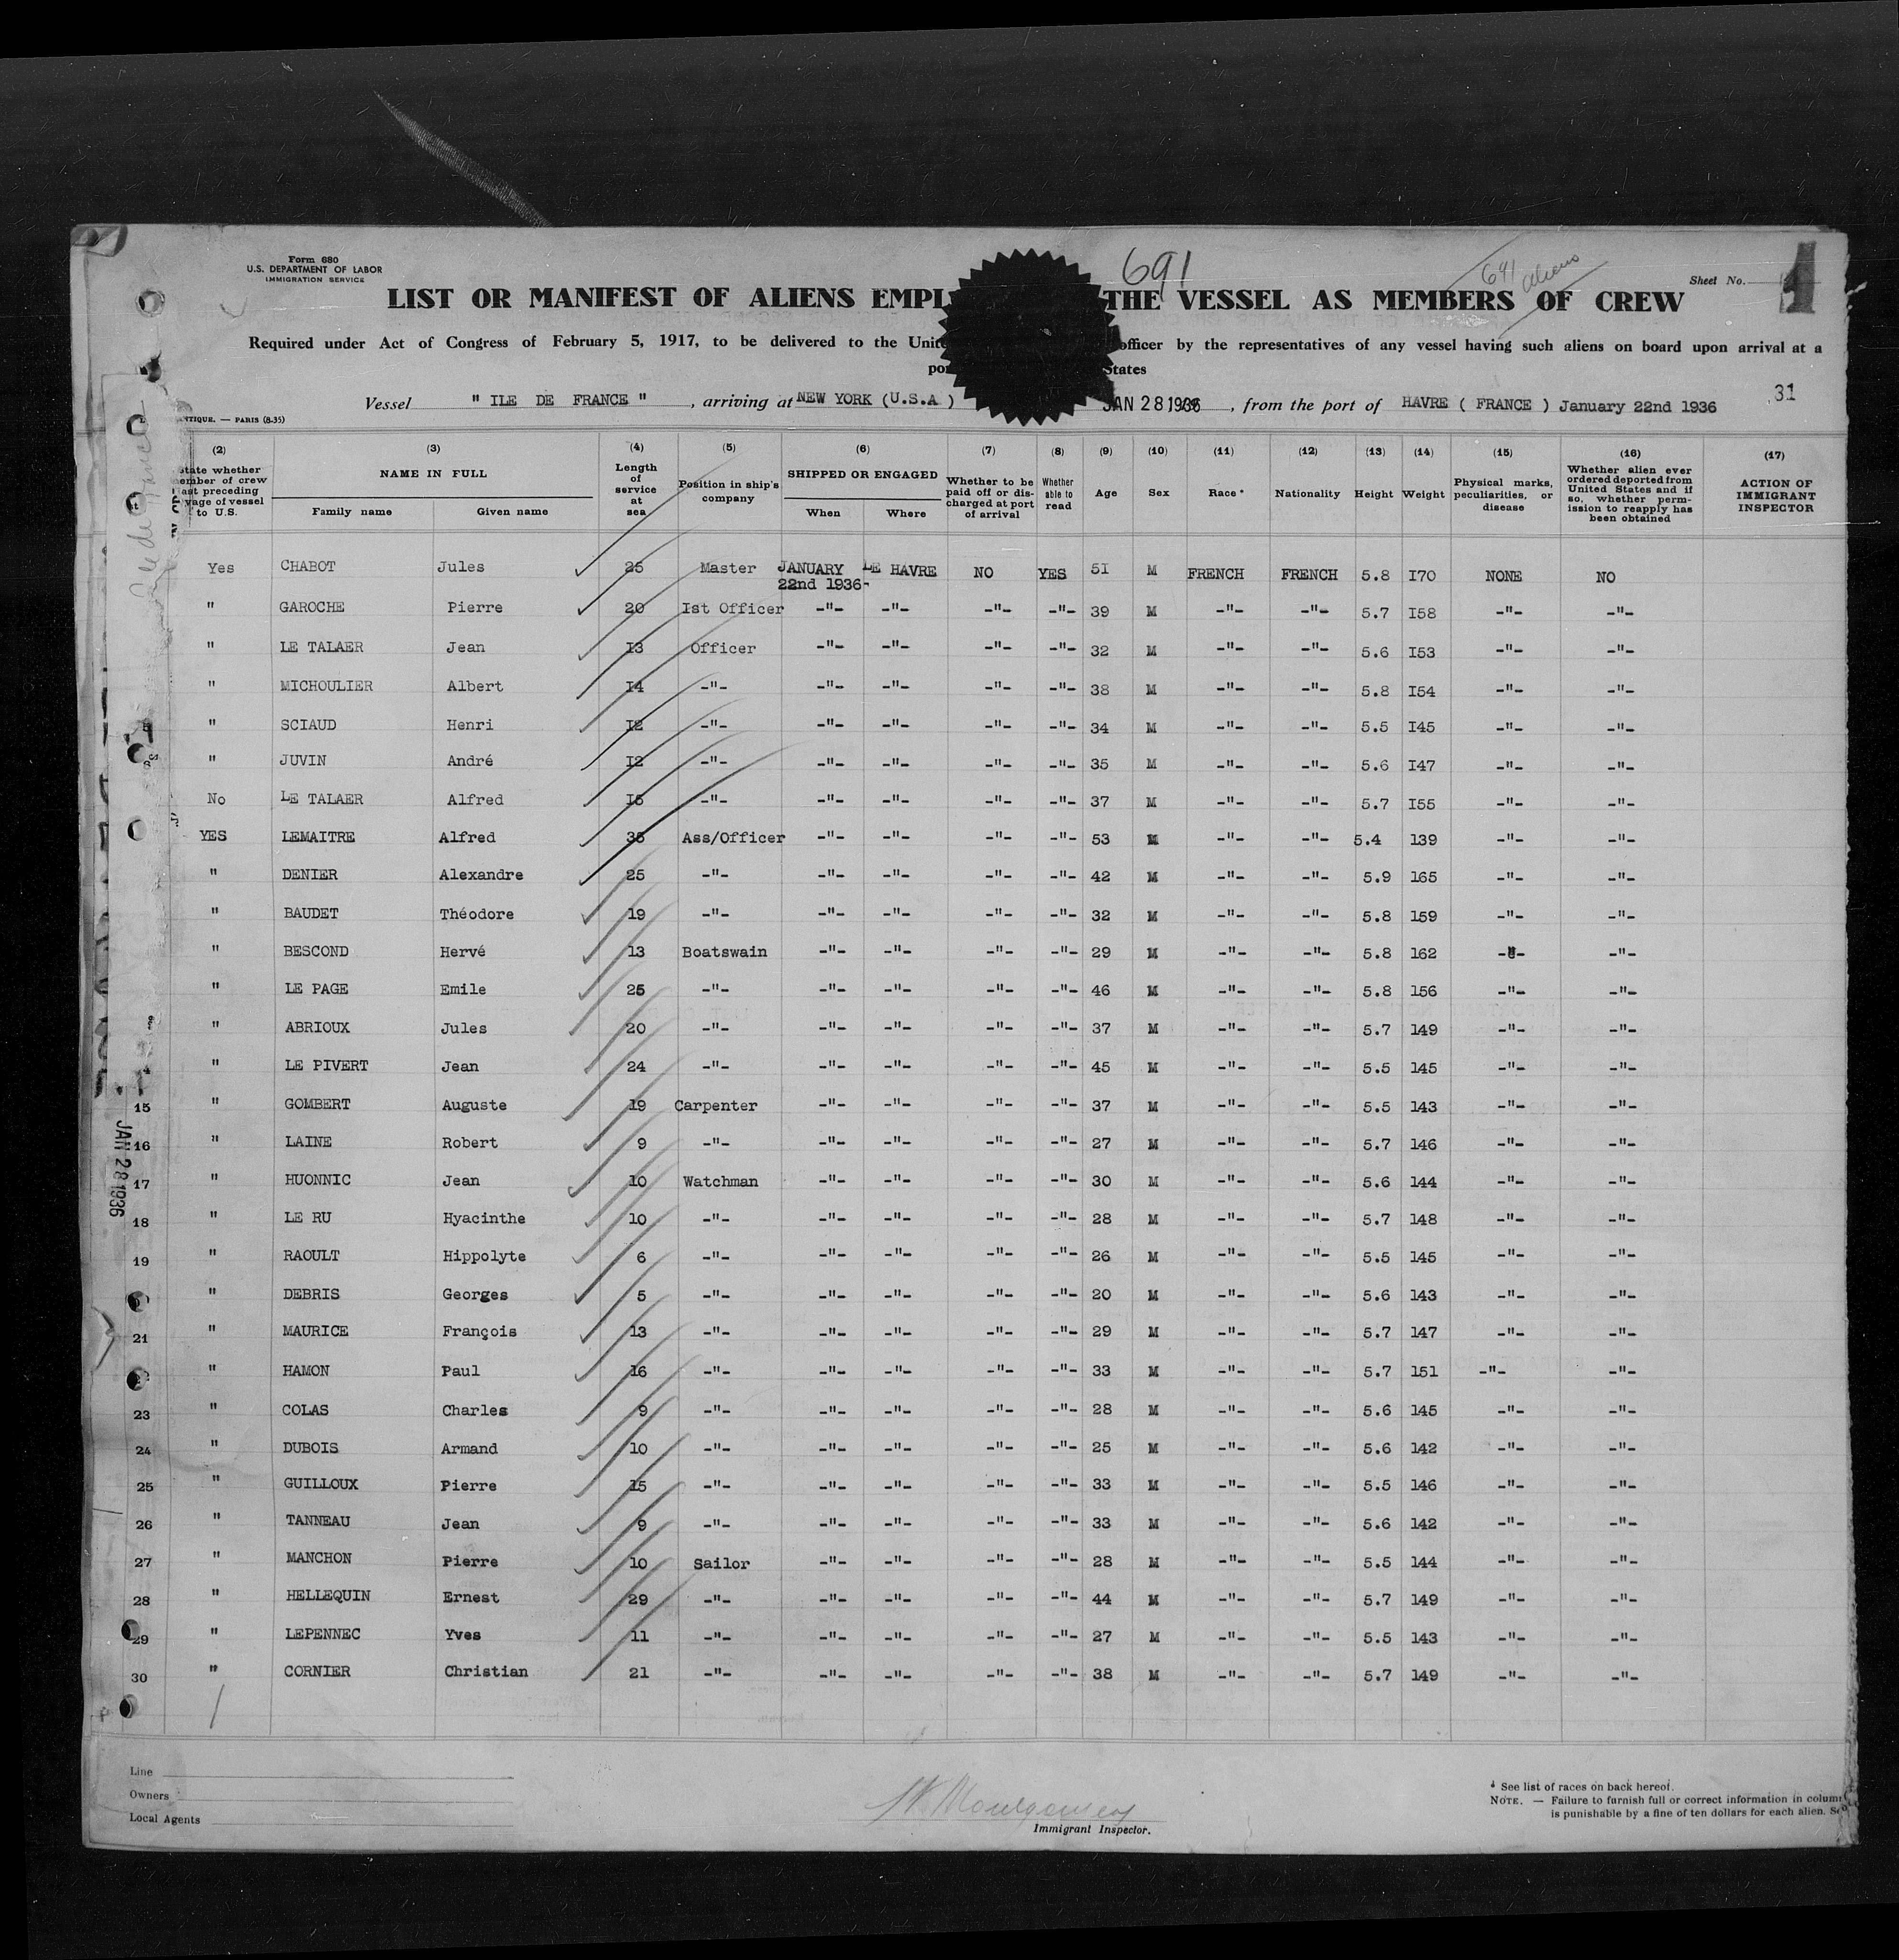 Form 680
U.S. DEPARTMENT OF LABOR
IMMIGRATION SERVICE
691
641 aliens
Sheet No. 1
LIST OR MANIFEST OF ALIENS EMPL THE VESSEL AS MEMBERS OF CREW
Required under Act of Congress of February 5, 1917, to be delivered to the Unite officer by the representatives of any vessel having such aliens on board upon arrival at a
po States
31
Vessel " ILE DE FRANCE " , arriving at NEW YORK (U.S.A ) JAN 28 1936 , from the port of HAVRE ( FRANCE ) January 22nd 1936
NTIQUE. — PARIS (8-35)
(2) (3) (4) (5) (6) (7) (8) (9) (10) (11) (12) (13) (14) (15) (16) (17)
State whether ember of crew ast preceding yage of vessel to U.S. NAME IN FULL Family name Given name Length of service at sea Position in ship's company SHIPPED OR ENGAGED When Where Whether to be paid off or discharged at port of arrival Whether able to read Age Sex Race * Nationality Height Weight Physical marks, peculiarities, or disease Whether alien ever ordered deported from United States and if so, whether permission to reapply has been obtained ACTION OF IMMIGRANT INSPECTOR
Yes CHABOT Jules 25 Master JANUARY 22nd 1936- LE HAVRE NO YES 51 M FRENCH FRENCH 5.8 I70 NONE NO
" GAROCHE Pierre 20 Ist Officer -"- -"- -"- -"- 39 M -"- -"- 5.7 I58 -"- -"-
" LE TALAER Jean I3 Officer -"- -"- -"- -"- 32 M -"- -"- 5.6 I53 -"- -"-
" MICHOULIER Albert I4 -"- -"- -"- -"- -"- 38 M -"- -"- 5.8 I54 -"- -"-
" SCIAUD Henri I2 -"- -"- -"- -"- -"- 34 M -"- -"- 5.5 I45 -"- -"-
" JUVIN André I2 -"- -"- -"- -"- -"- 35 M -"- -"- 5.6 I47 -"- -"-
No LE TALAER Alfred -"- -"- -"- -"- -"- 37 M -"- -"- 5.7 I55 -"- -"-
YES LEMAITRE Alfred Ass/Officer -"- -"- -"- -"- 53 M -"- -"- 5.4 139 -"- -"-
" DENIER Alexandre 25 -"- -"- -"- -"- -"- 42 M -"- -"- 5.9 165 -"- -"-
" BAUDET Théodore 19 -"- -"- -"- -"- -"- 32 M -"- -"- 5.8 159 -"- -"-
" BESCOND Hervé 13 Boatswain -"- -"- -"- -"- 29 M -"- -"- 5.8 162 -"- -"-
" LE PAGE Emile 25 -"- -"- -"- -"- -"- 46 M -"- -"- 5.8 156 -"- -"-
" ABRIOUX Jules 20 -"- -"- -"- -"- -"- 37 M -"- -"- 5.7 149 -"- -"-
" LE PIVERT Jean 24 -"- -"- -"- -"- -"- 45 M -"- -"- 5.5 145 -"- -"-
15 " GOMBERT Auguste 19 Carpenter -"- -"- -"- -"- 37 M -"- -"- 5.5 143 -"- -"-
16 " LAINE Robert 9 -"- -"- -"- -"- -"- 27 M -"- -"- 5.7 146 -"- -"-
17 " HUONNIC Jean 10 Watchman -"- -"- -"- -"- 30 M -"- -"- 5.6 144 -"- -"-
18 " LE RU Hyacinthe 10 -"- -"- -"- -"- -"- 28 M -"- -"- 5.7 148 -"- -"-
19 " RAOULT Hippolyte 6 -"- -"- -"- -"- -"- 26 M -"- -"- 5.5 145 -"- -"-
" DEBRIS Georges 5 -"- -"- -"- -"- -"- 20 M -"- -"- 5.6 143 -"- -"-
21 " MAURICE François 13 -"- -"- -"- -"- -"- 29 M -"- -"- 5.7 147 -"- -"-
" HAMON Paul 16 -"- -"- -"- -"- -"- 33 M -"- -"- 5.7 151 -"- -"-
23 " COLAS Charles 9 -"- -"- -"- -"- -"- 28 M -"- -"- 5.6 145 -"- -"-
24 " DUBOIS Armand 10 -"- -"- -"- -"- -"- 25 M -"- -"- 5.6 142 -"- -"-
25 " GUILLOUX Pierre 15 -"- -"- -"- -"- -"- 33 M -"- -"- 5.5 146 -"- -"-
26 " TANNEAU Jean 9 -"- -"- -"- -"- -"- 33 M -"- -"- 5.6 142 -"- -"-
27 " MANCHON Pierre 10 Sailor -"- -"- -"- -"- 28 M -"- -"- 5.5 144 -"- -"-
28 " HELLEQUIN Ernest 29 -"- -"- -"- -"- -"- 44 M -"- -"- 5.7 149 -"- -"-
29 " LEPENNEC Yves 11 -"- -"- -"- -"- -"- 27 M -"- -"- 5.5 143 -"- -"-
30 " CORNIER Christian 21 -"- -"- -"- -"- -"- 38 M -"- -"- 5.7 149 -"- -"-
JAN 28 1936
Line
Owners
Local Agents
Montgomery
Immigrant Inspector.
* See list of races on back hereof.
NOTE. — Failure to furnish full or correct information in colum
is punishable by a fine of ten dollars for each alien. Se